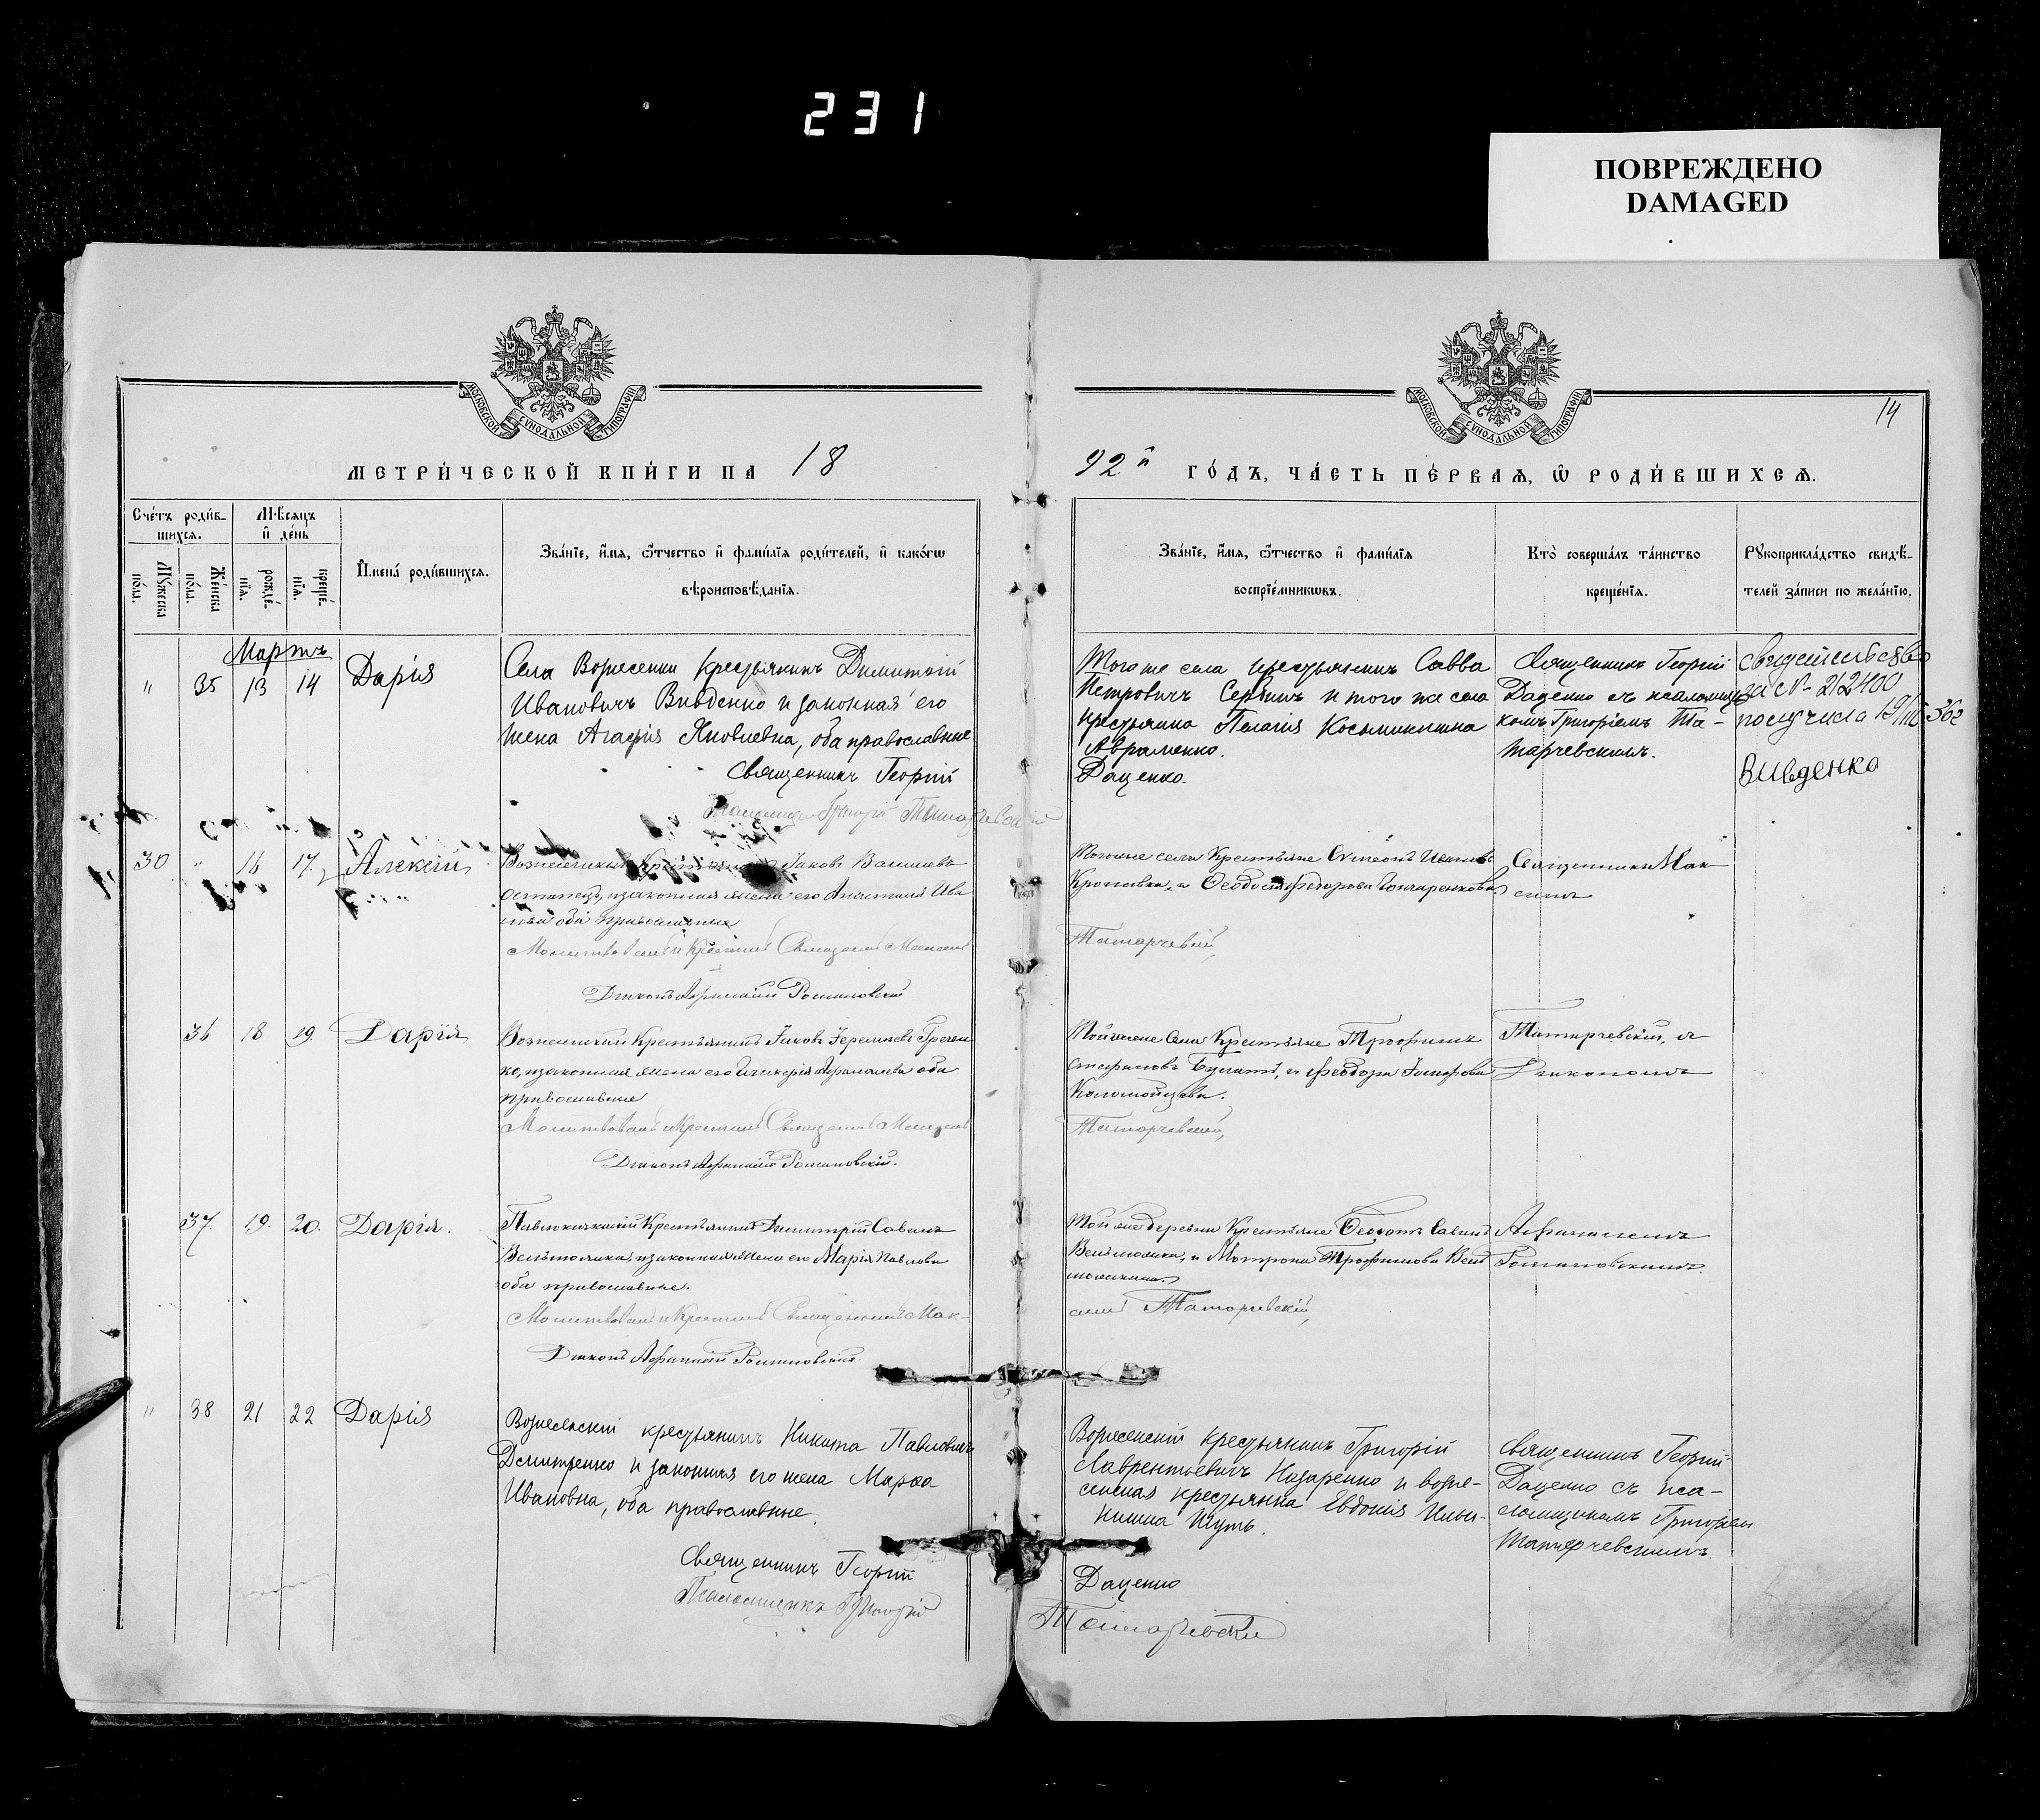 231
ПОВРЕЖДЕНО
DAMAGED
МОСКОВСКОЙ СѴНОДАЛЬНОЙ ТИПОГРАФІИ
МОСКОВСКОЙ СѴНОДАЛЬНОЙ ТИПОГРАФІИ
14
МЕТРИ́ЧЕСКОЙ КНИ́ГИ НА 18
92й ГО́ДЪ, ЧА́СТЬ ПЕ́РВАЯ, Ѡ РОДИ́ВШИХСЯ.
Сче́тъ роди́в-
шихся.
Мѣ́сяцъ
и де́нь
Му́жеска
по́ла.
Же́нска
по́ла.
рожде́-
нія.
креще́-
нія.
Имена́ роди́вшихся.
Зва́нїе, и́мя, ѻ́тчество и фами́лїя роди́телей, и како́гѡ
вѣроисповѣ́данїя.
Зва́нїе, и́мя, ѻ́тчество и фами́лїя
воспрїе́мникѡвъ.
Кто̀ соверша́лъ та́инство
креще́нїя.
Рꙋкоприкла́дство свидѣ́-
телей за́писи по жела́нїю.
Мартъ
" 35 13 14 Дарія
Села Вознесенки крестьянинъ Димитрій
Ивановичъ Вивденко и законная его
жена Агафія Яковлевна, оба православные
Священникъ Георгій
Псаломщикъ Григорій Татарчевскій
Того же села крестьянинъ Савва
Петровичъ и того же села
крестьянка Пелагія Косьминишна
Авраменко.
Даценко.
Священникъ Георгій
Даценко съ псаломщи-
комъ Григоріемъ Та-
тарчевскимъ.
свидетельство
за № 212400
получила 19/III 36г
Вивденко
30 " 16 17 Алексій
Вознесенскій Іаковъ Васильевъ
и законная жена его Анастасія Ива
нова оба православные
Молитвовалъ и Крестилъ Священникъ Максимъ
Діаконъ Афанасій Романовскій
Тогоже села Крестьяне Симеонъ Ивановъ
и Ѳеодосія Федорова Гончаренкова
Татарчевскій,
Священникъ Мак-
симъ
36 18 19. Дарія
Вознесенскій Крестьянинъ Іаковъ Іереміевъ Гречен
ко, и законная жена его Гликерія Афанасіева оба
православные
Молитвовалъ и Крестилъ Священникъ Максимъ
Діаконъ Афанасій Романовскій.
Тойжe села Крестьяне Трофимъ
Стефановъ и Феодора
Коломойцева.
Татарчевскій,
Татарчевскій, съ
Діакономъ
37. 19. 20. Дарія.
Крестьянинъ Димитрій Савинъ
и законная жена его Марія Павлова
оба православные.
Молитвовалъ и Крестилъ Священникъ Мак-
Діаконъ Афанасій Романовскій
Той же деревни Крестьяне Ѳеодотъ Савинъ
и Матрона Трофимова
симъ Татарчевскій,
Афанасіемъ
Романовскимъ.
" 38 21 22 Дарія
Вознесенскій крестьянинъ Никита Павловичъ
Дмитренко и законная его жена Марѳа
Ивановна, оба православные.
Священникъ Георгій
Псаломщикъ Григорій
Вознесенскій крестьянинъ Григорій
Лаврентьевичъ Назаренко и возне-
сенская крестьянка Евдокія Ильи-
нишна Шуть.
Даценко
Татарчевскій
Священникъ Георгій
Даценко съ пса-
ломщикомъ Григоріем
Татарчевскимъ.